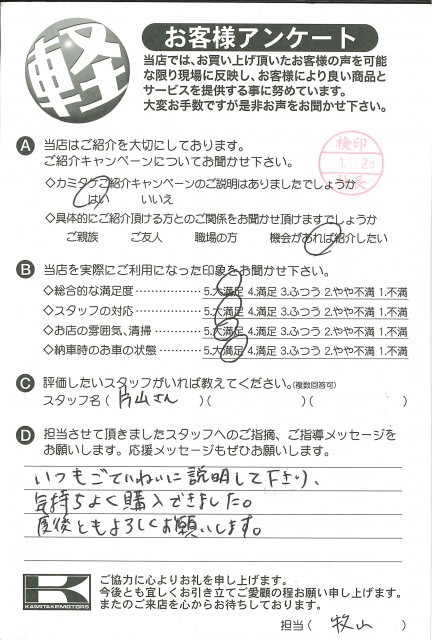 軽
お客様アンケート
当店では、お買い上げ頂いたお客様の声を可能
な限り現場に反映し、お客様により良い商品と
サービスを提供する事に努めています。
大変お手数ですが是非お声をお聞かせ下さい。
A 当店はご紹介を大切にしております。
ご紹介キャンペーンについてお聞かせ下さい。
検印
社長
◇カミタケご紹介キャンペーンのご説明はありましたでしょうか
はい いいえ
◇具体的にご紹介頂ける方とのご関係をお聞かせ頂けますでしょうか
ご親族 ご友人 職場の方 機会があれば紹介したい
B 当店を実際にご利用になった印象をお聞かせ下さい。
◇総合的な満足度 …………… 5.大満足 4.満足 3.ふつう 2.やや不満 1.不満
◇スタッフの対応 …………… 5.大満足 4.満足 3.ふつう 2.やや不満 1.不満
◇お店の雰囲気、清掃 ………… 5.大満足 4.満足 3.ふつう 2.やや不満 1.不満
◇納車時のお車の状態 ………… 5.大満足 4.満足 3.ふつう 2.やや不満 1.不満
C 評価したいスタッフがいれば教えてください。(複数回答可)
スタッフ名 ( 片山さん )( )( )
D 担当させて頂きましたスタッフへのご指摘、ご指導メッセージを
お願いします。応援メッセージもぜひお願いします。
いつもごていねいに説明して下さり、
気持ちよく購入できました。
今後ともよろしくお願いします。
K
KAMITAKEMOTORS
ご協力に心よりお礼を申し上げます。
今後とも宜しくお引き立てご愛顧の程お願い申し上げます。
またのご来店を心からお待ちしております。
担当 ( 牧山 )